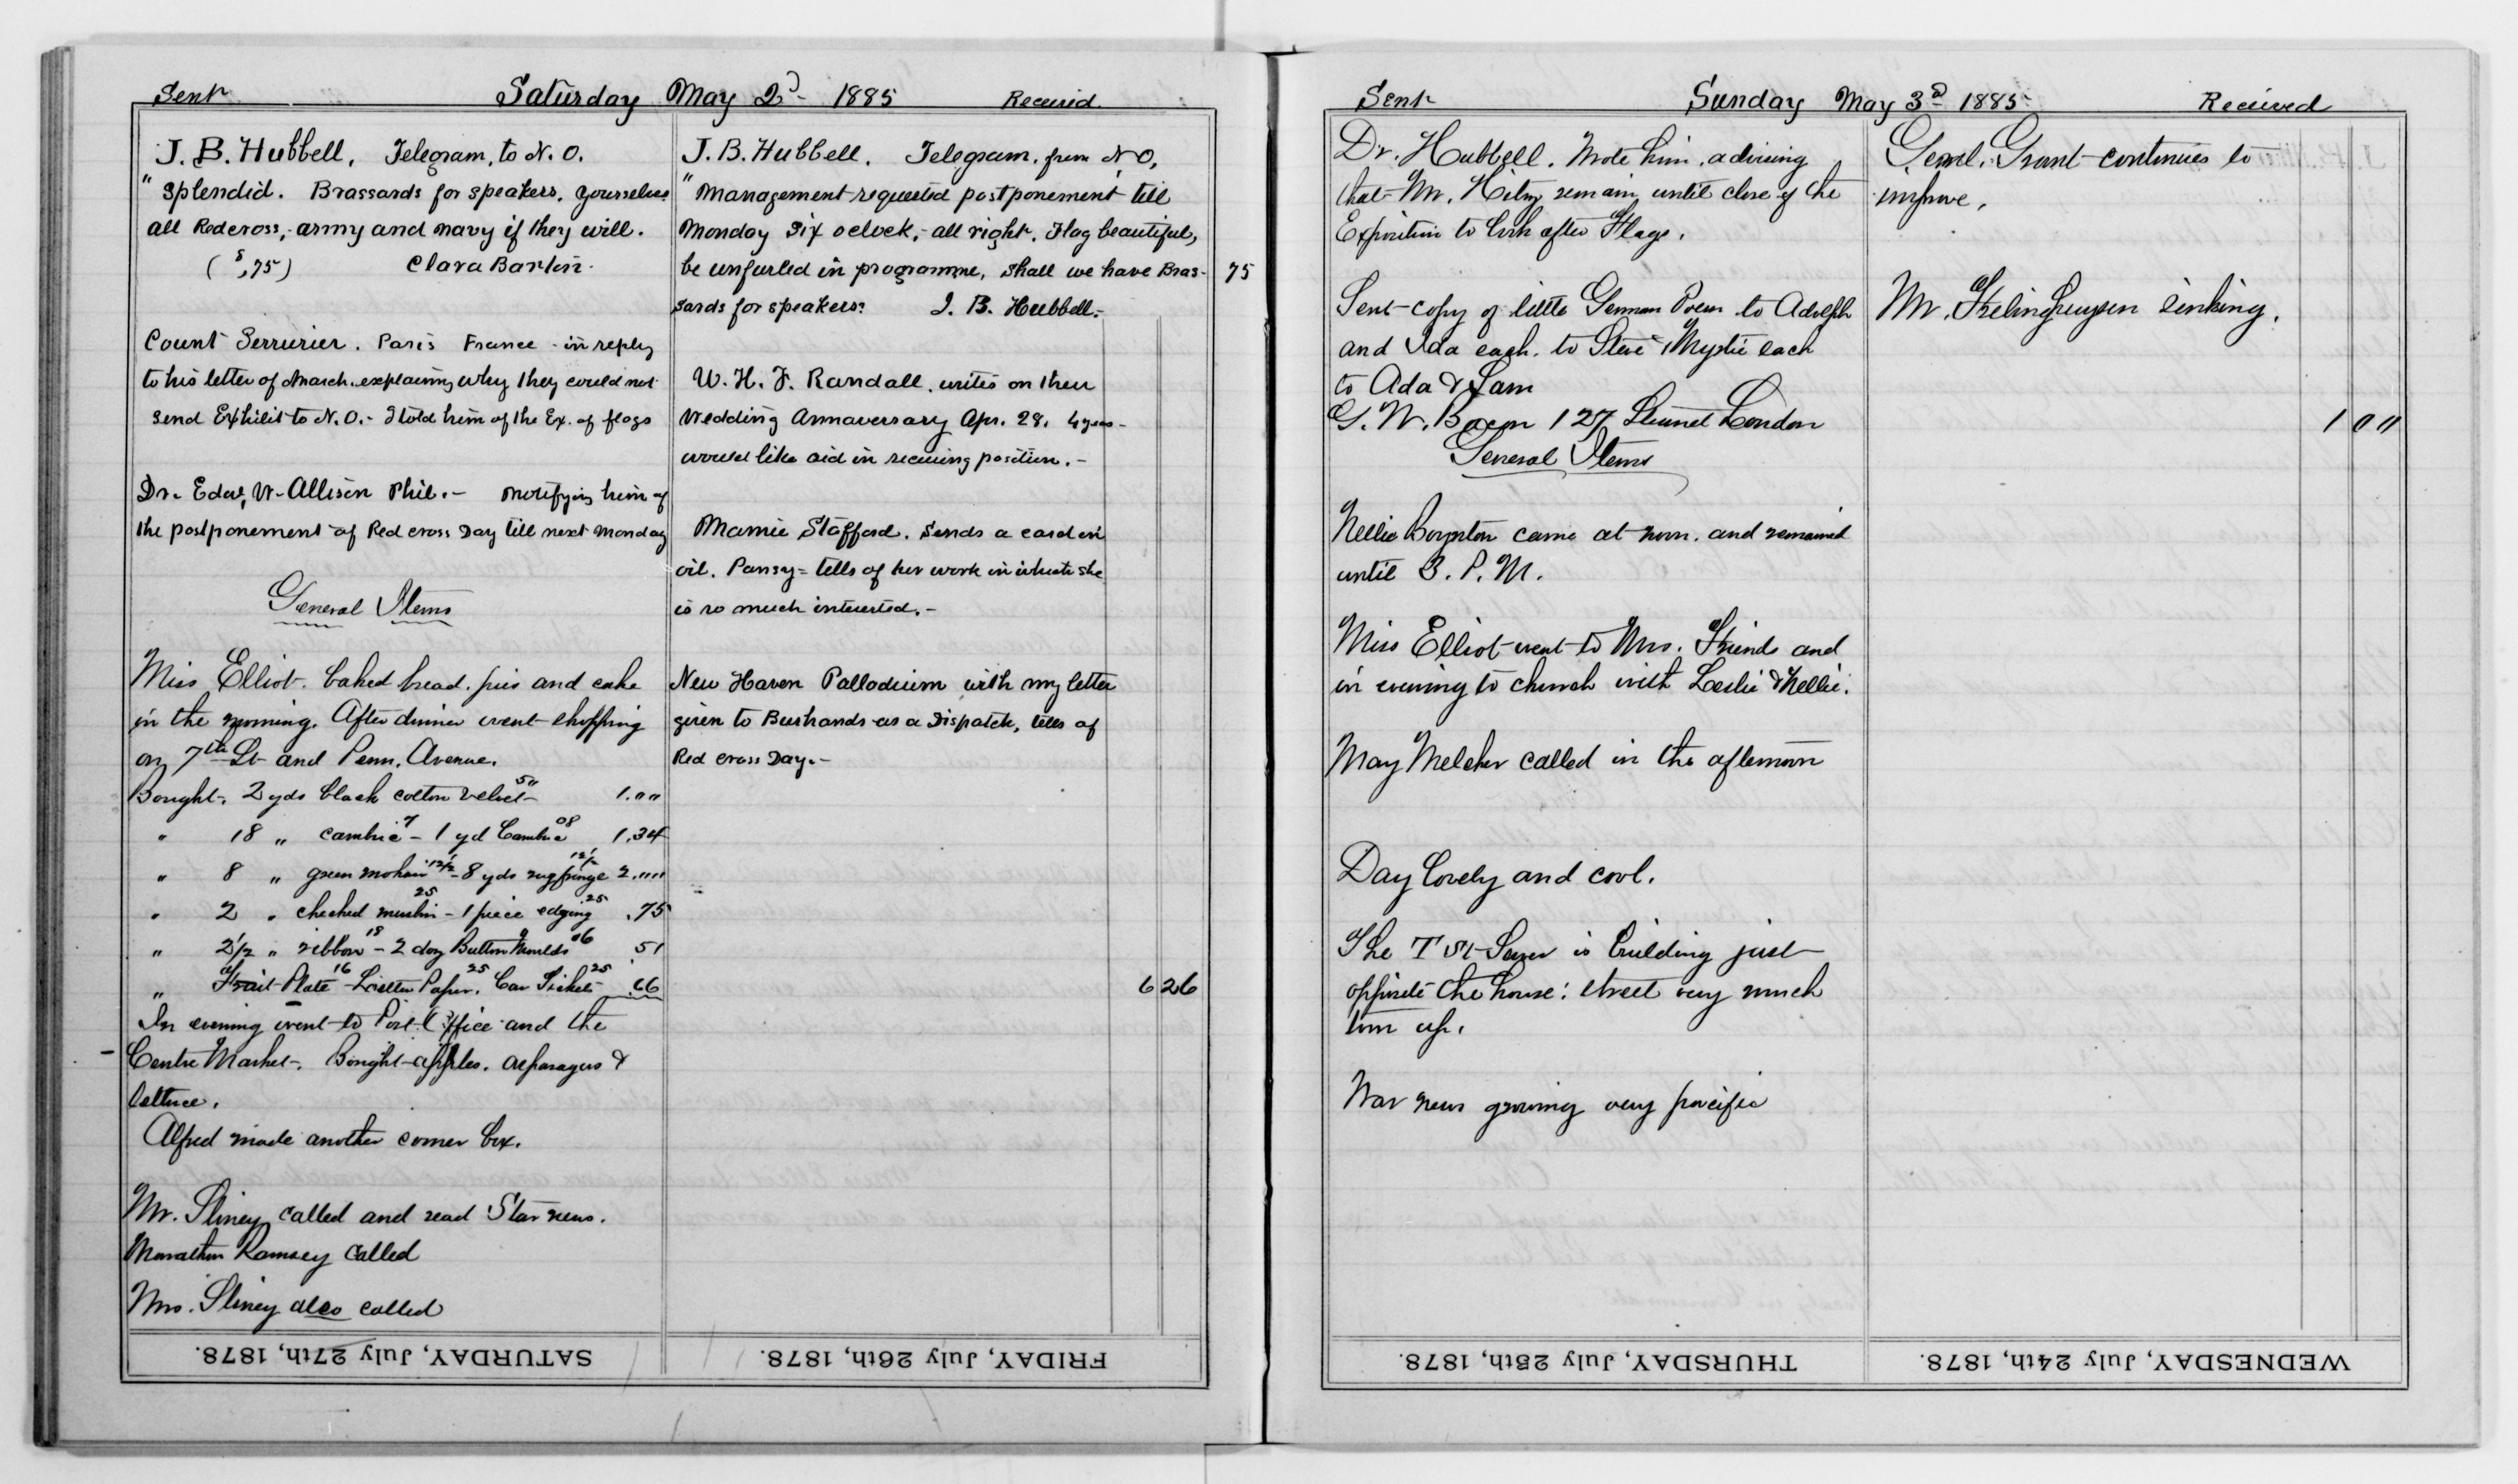 Sent Saturday May 2d 1885 Received
J. B. Hubbell, Telegram, to N. O.
"Splendid. Brassards for speakers. Yourselves
all Redcross, - army and navy if they will.
($.75) Clara Barton.
Count Serrurier. Paris France - in reply
to his letter of March. explaining why they could not
send Exhibit to N. O. - I told him of the Ex. of flags
Dr. Edw. W. Allison Phil. - notifying him of
the postponement of Red cross Day till next Monday
General Items
Miss Elliot. baked bread. pies and cake
in the morning. After dinner went shopping
on 7th St and Penn. Avenue.
Bought. 2 yds black cotton velvet 50 1.00
" 18 " cambric 7 - 1 yd Cambric 08 1.34
" 8 " green mohair 12½ - 8 yds rug fringe 12½ 2.00
" 2 " checked muslin 25 - 1 piece edging 25 .75
" 2½ " ribbon 18 - 2 doz Button Moulds 06 .51
" Fruit Plate 16 - Letter Paper 25. Car Tickets 25 .66
In evening went to Post Office and the
Centre Market. Bought apples. asparagus &
lettuce.
Alfred made another corner box.
Mr. Sliney called and read Star news.
Ramsey called
Mrs. Sliney also called
J. B. Hubbell. Telegram. from N O,
"Management requested postponement till
Monday six oclock, - all right. Flag beautiful,
be unfurled in programme, shall we have Bras- 75
sards for speakers? J. B. Hubbell. -
W. H. F. Randall. writes on their
Wedding Annaversary Apr. 28. 4 years -
would like aid in securing position. -
Mamie Stafford. Sends a card in
oil. Pansy = tells of her work in which she
is so much interested. -
New Haven Palladium with my letter
given to as a Dispatch, tells of
Red cross Day. -
6 26
SATURDAY, July 27th, 1878.
FRIDAY, July 26th, 1878.
Sent Sunday May 3d 1885 Received
Dr. Hubbell. Wrote him. advising
that Mr. remain until close of the
Exposition to look after Flags.
Sent copy of little German Poem to Adolph
and Ida each. to Steve & Myrtie each
to Ada & Sam
G. W. Bacon 127 Strand London 1 00
General Items
Nellie Boynton came at noon. and remained
until 3. P. M.
Miss Elliot went to Mrs. Friends and
in evening to church with Leslie & Nellie.
May Melcher called in the afternoon
Day lovely and cool.
The T St Sewer is building just
opposite the house: street very much
torn up.
War news growing very pacific
Genrl. Grant continues to
improve.
Mr. Frelinghuysen sinking.
THURSDAY, July 25th, 1878.
WEDNESDAY, July 24th, 1878.